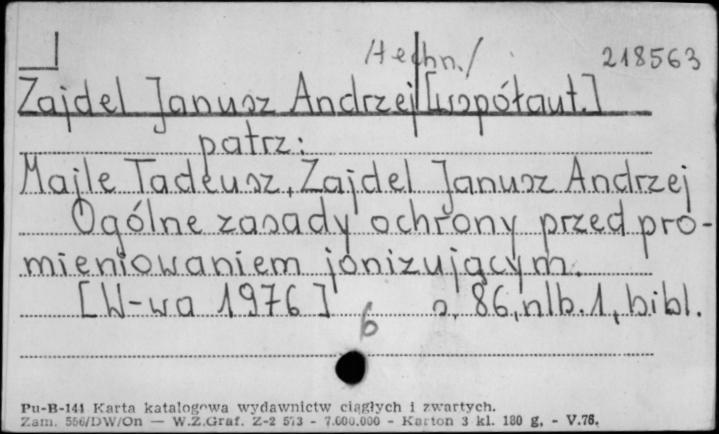 /techn./ 218563
Zajdel Janusz Andrzej [współaut.]
patrz:
Majle Tadeusz, Zajdel Janusz Andrzej
Ogólne zasady ochrony przed pro-
mieniowaniem jonizującym.
[W-wa 1976] s. 86, nlb. 1, bibl.
6
Pu-B-141 Karta katalogowa wydawnictw ciągłych i zwartych.
Zam. 556/DW/On — W.Z.Graf. Z-2 573 - 7.000.000 - Karton 3 kl. 180 g, - V.76.